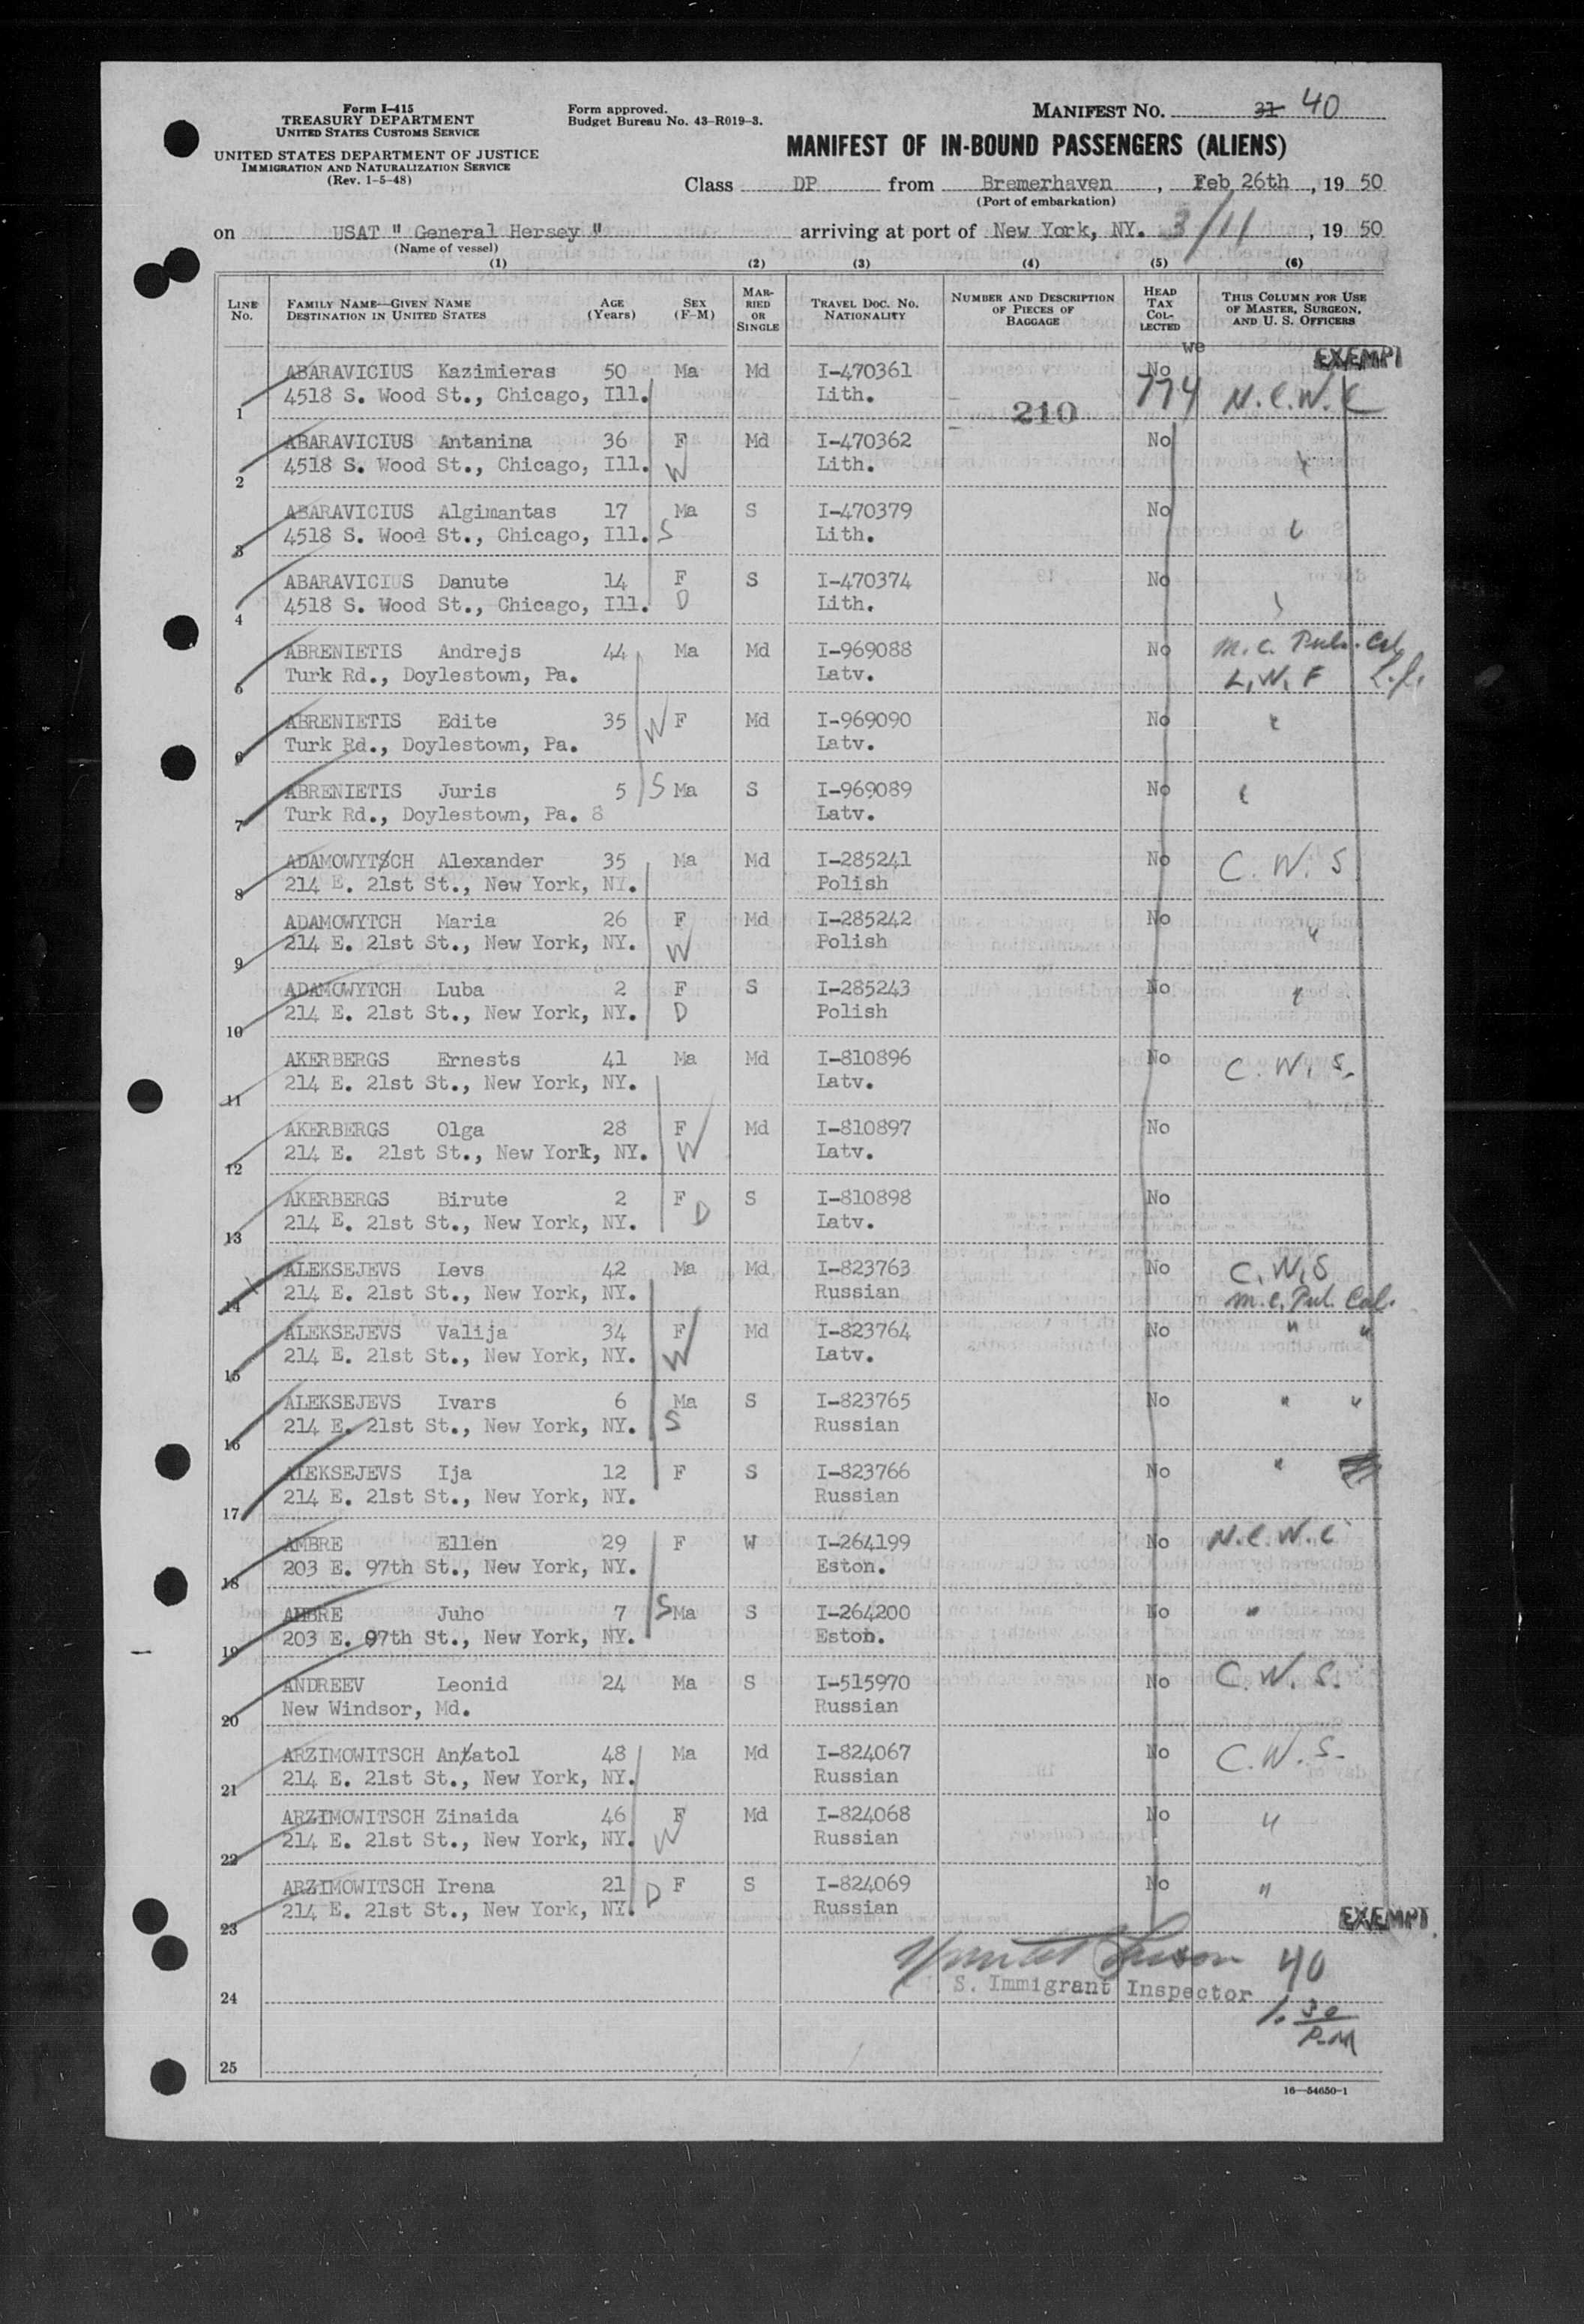 Form I-415
TREASURY DEPARTMENT
UNITED STATES CUSTOMS SERVICE
UNITED STATES DEPARTMENT OF JUSTICE
IMMIGRATION AND NATURALIZATION SERVICE
(Rev. 1-5-48)
Form approved.
Budget Bureau No. 43-R019-3.
MANIFEST NO. 31 40
MANIFEST OF IN-BOUND PASSENGERS (ALIENS)
Class DP from Bremerhaven, Feb 26th, 19 50
(Port of embarkation)
on USAT " General Hersey " arriving at port of New York, NY. 3/11, 19 50
(Name of vessel)
(1) (2) (3) (4) (5) (6)
LINE No. FAMILY NAME—GIVEN NAME DESTINATION IN UNITED STATES AGE (Years) SEX (F-M) MARRIED OR SINGLE TRAVEL DOC. NO. NATIONALITY NUMBER AND DESCRIPTION OF PIECES OF BAGGAGE HEAD TAX COLLECTED THIS COLUMN FOR USE OF MASTER, SURGEON, AND U. S. OFFICERS
we EXEMPT
ABARAVICIUS Kazimieras 50 Ma Md I-470361 No
1 4518 S. Wood St., Chicago, Ill. Lith. 210 774 N.C.W.C
ABARAVICIUS Antanina 36 F Md I-470362 No
2 4518 S. Wood St., Chicago, Ill. W Lith.
ABARAVICIUS Algimantas 17 Ma S I-470379 No
3 4518 S. Wood St., Chicago, Ill. S Lith.
ABARAVICIUS Danute 14 F S I-470374 No
4 4518 S. Wood St., Chicago, Ill. D Lith.
ABRENIETIS Andrejs 44 Ma Md I-969088 No M.C.
5 Turk Rd., Doylestown, Pa. Latv. L.W.F
ABRENIETIS Edite 35 W F Md I-969090 No
6 Turk Rd., Doylestown, Pa. Latv.
ABRENIETIS Juris 5 S Ma S I-969089 No
7 Turk Rd., Doylestown, Pa. 8 Latv.
ADAMOWYTSCH Alexander 35 Ma Md I-285241 No C.W.S
8 214 E. 21st St., New York, NY. Polish
ADAMOWYTCH Maria 26 F Md I-285242 No "
9 214 E. 21st St., New York, NY. W Polish
ADAMOWYTCH Luba 2 F S I-285243 No "
10 214 E. 21st St., New York, NY. D Polish
AKERBERGS Ernests 41 Ma Md I-810896 No C.W.S.
11 214 E. 21st St., New York, NY. Latv.
AKERBERGS Olga 28 F Md I-810897 No
12 214 E. 21st St., New York, NY. W Latv.
AKERBERGS Birute 2 F S I-810898 No
13 214 E. 21st St., New York, NY. D Latv.
ALEKSEJEVS Levs 42 Ma Md I-823763 No C.W.S
14 214 E. 21st St., New York, NY. Russian M.C.
ALEKSEJEVS Valija 34 F Md I-823764 No " "
15 214 E. 21st St., New York, NY. W Latv.
ALEKSEJEVS Ivars 6 Ma S I-823765 No " "
16 214 E. 21st St., New York, NY. S Russian
ALEKSEJEVS Ija 12 F S I-823766 No "
17 214 E. 21st St., New York, NY. Russian
AMBRE Ellen 29 F W I-264199 No N.C.W.C
18 203 E. 97th St., New York, NY. Eston.
AMBRE Juho 7 S Ma S I-264200 No "
19 203 E. 97th St., New York, NY. Eston.
ANDREEV Leonid 24 Ma S I-515970 No C.W.S.
20 New Windsor, Md. Russian
ARZIMOWITSCH Anatol 48 Ma Md I-824067 No C.W.S.
21 214 E. 21st St., New York, NY. Russian
ARZIMOWITSCH Zinaida 46 F Md I-824068 No "
22 214 E. 21st St., New York, NY. W Russian
ARZIMOWITSCH Irena 21 D F S I-824069 No "
23 214 E. 21st St., New York, NY. Russian EXEMPT
24 S. Immigrant Inspector 40
1.30 P.M
25
16—54650-1